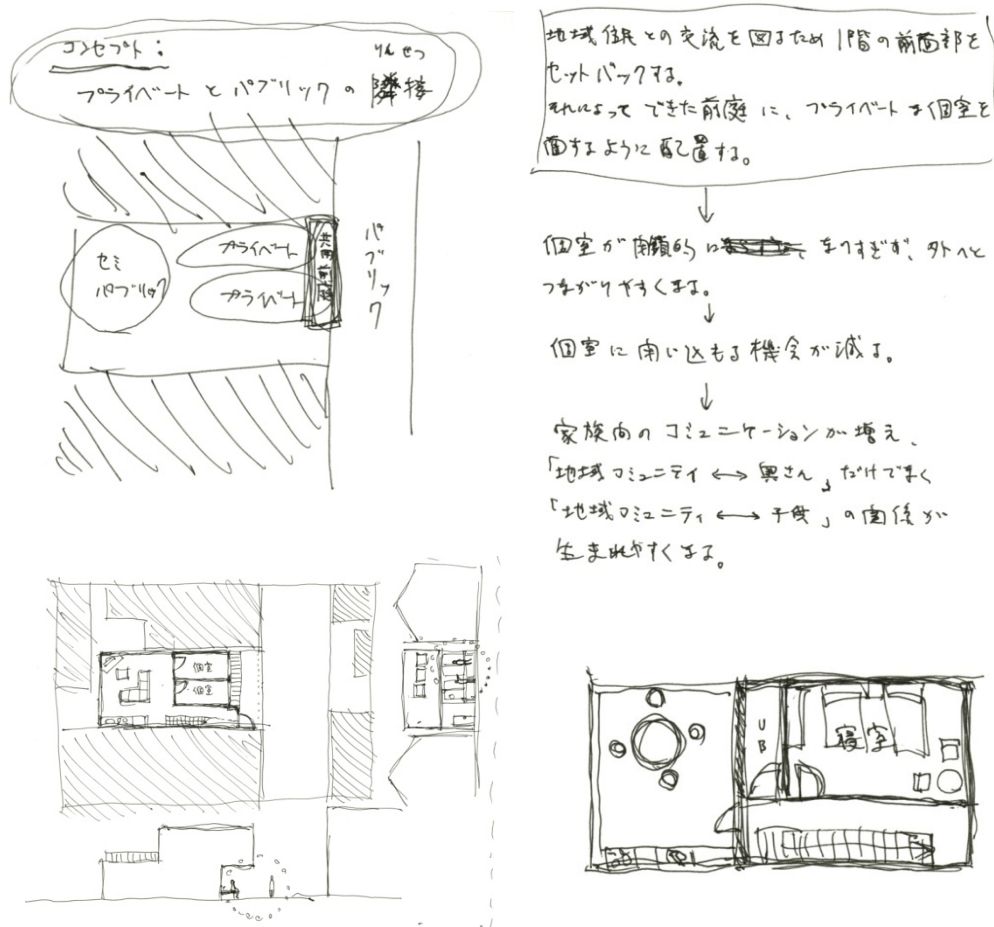 コンセプト：
りんせつ
プライベートとパブリックの隣接
プライベート
プライベート
セミ
パブリック
共用前庭
パブリック
地域住民との交流を図るため1階の前面部を
セットバックする。
それによってできた前庭に、プライベートな個室を
面するように配置する。
個室が閉鎖的になりすぎず、外へと
つながりやすくなる。
個室に閉じ込もる機会が減る。
家族間のコミュニケーションが増え、
「地域コミュニティ ←→ 奥さん」だけでなく
「地域コミュニティ ←→ 子供」の関係が
生まれやすくなる。
個室
個室
UB
寝室